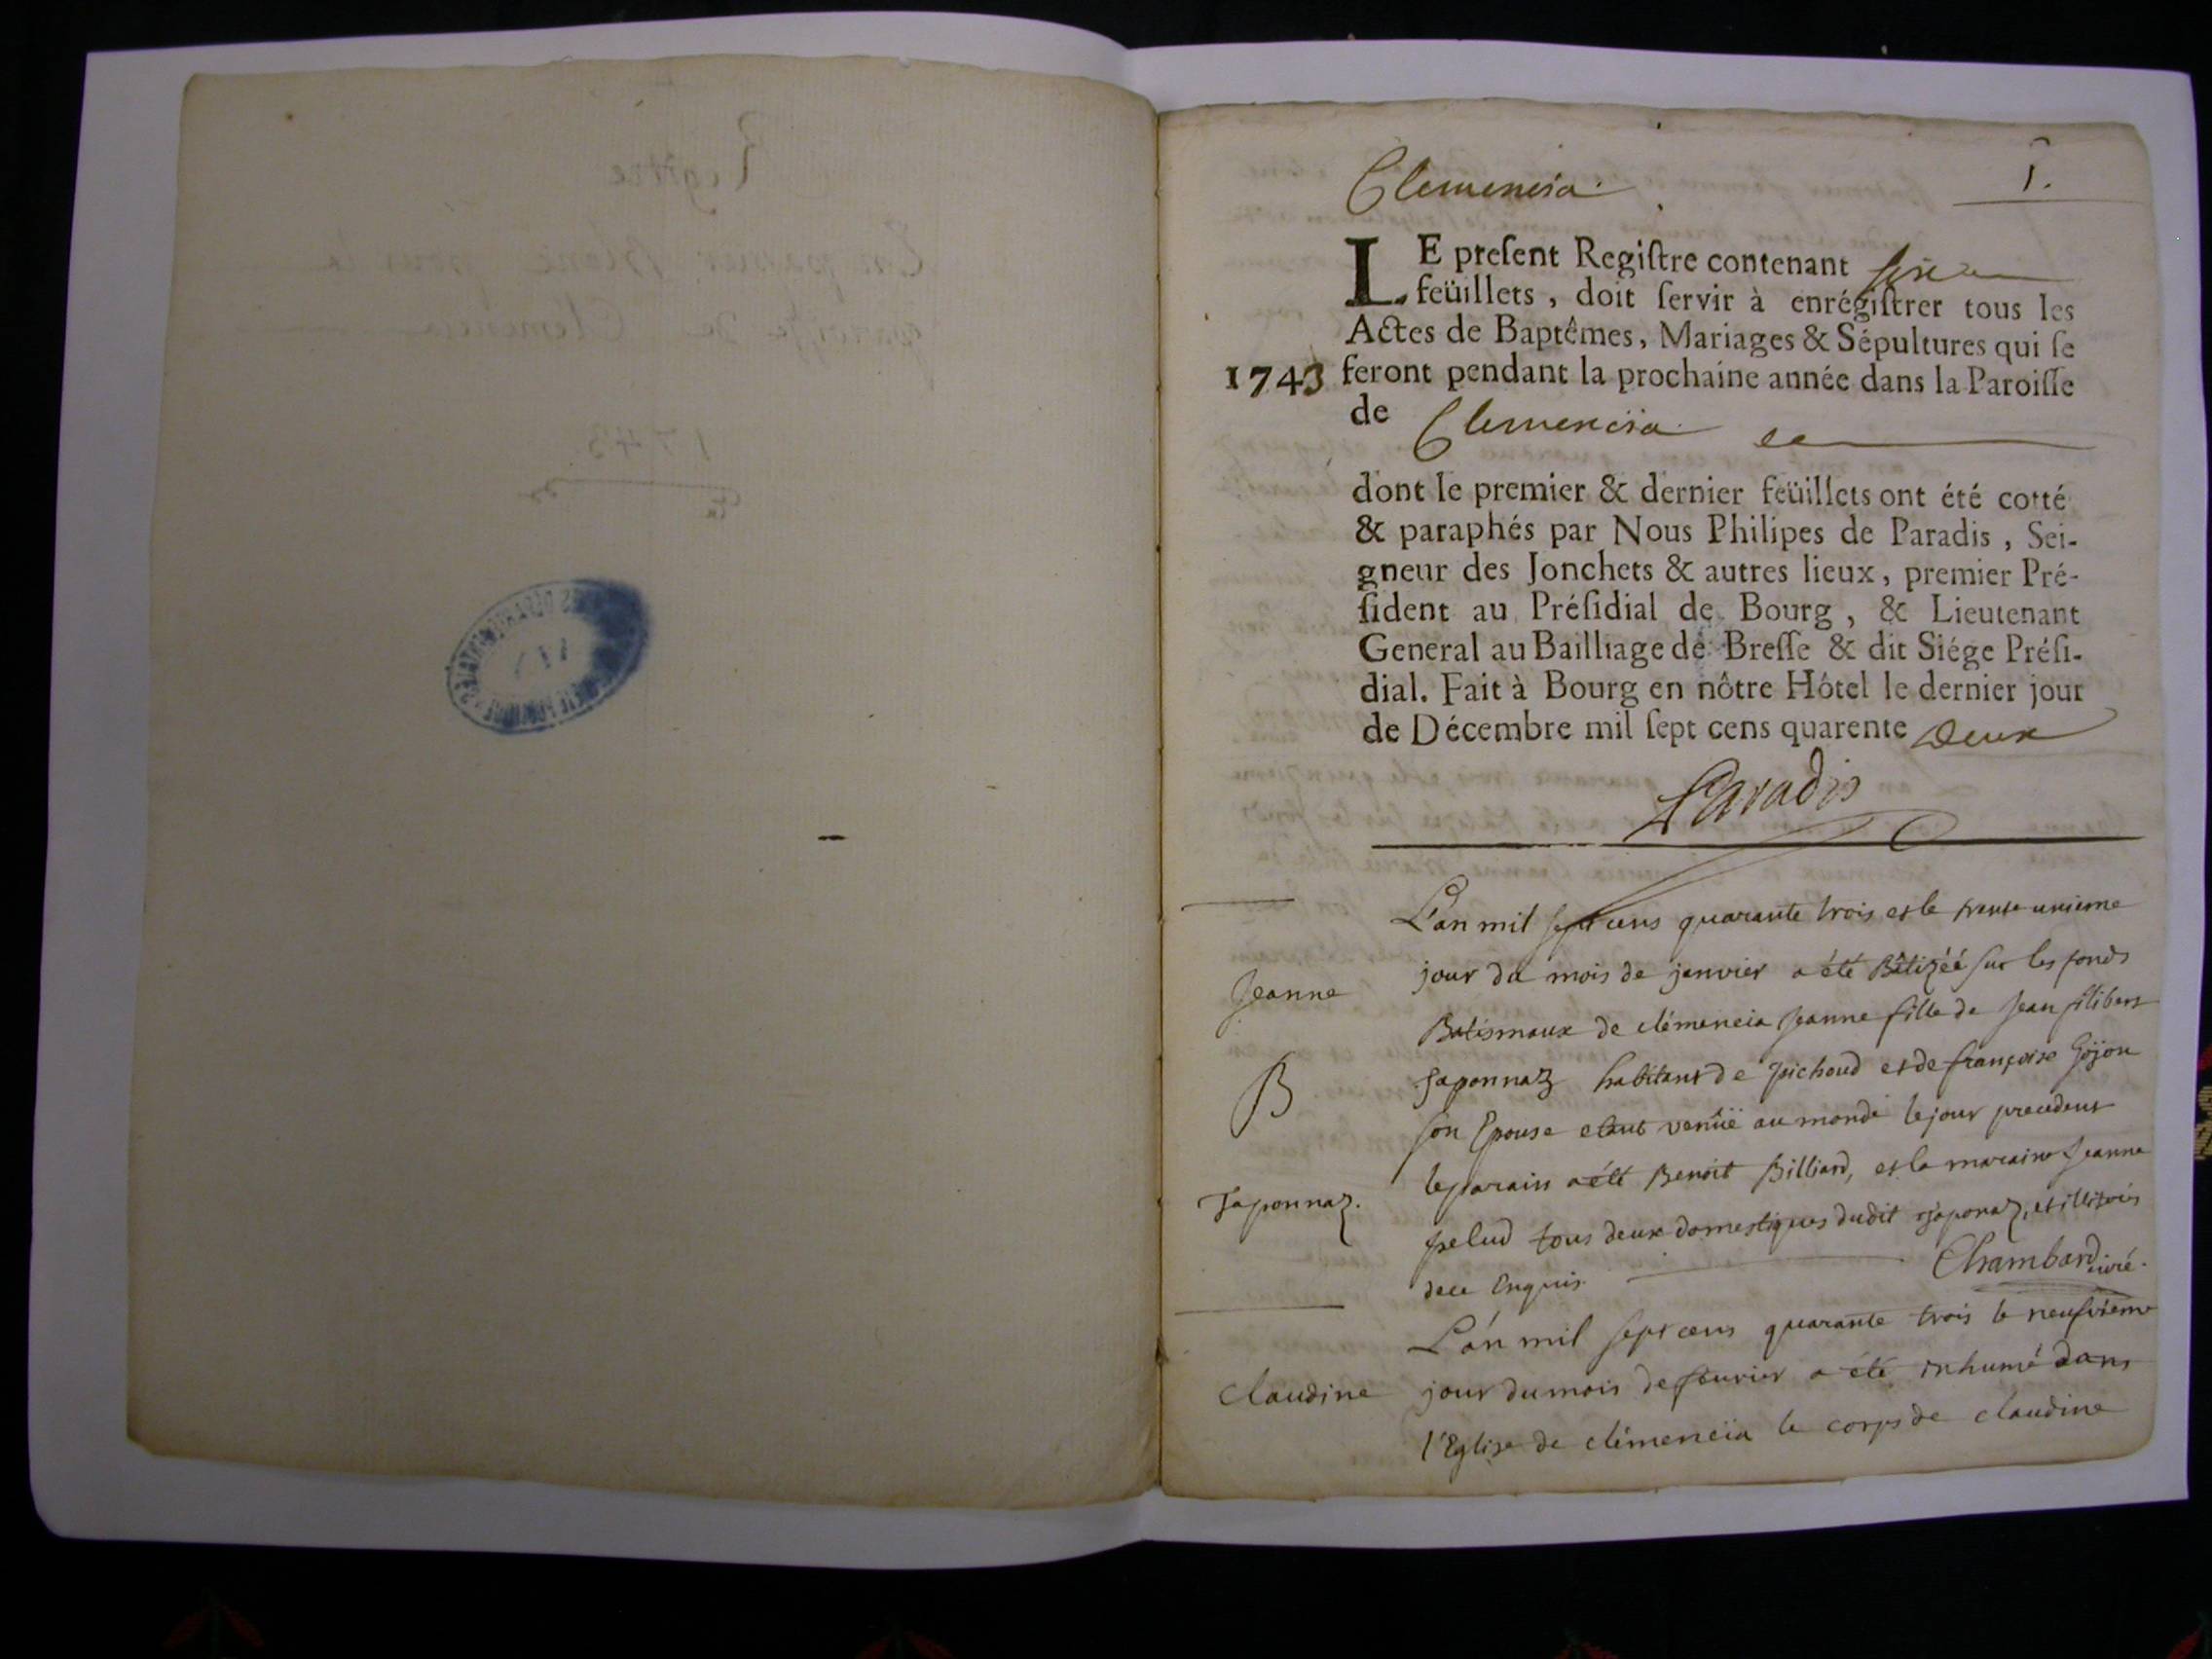 Clemencia.
1.
LE preſent Regiſtre contenant six
feüillets, doit ſervir à enrégiſtrer tous les
Actes de Baptêmes, Mariages & Sépultures qui ſe
1743 feront pendant la prochaine année dans la Paroiſſe
de Clemencia
dont le premier & dernier feüillets ont été cotté
& paraphés par Nous Philipes de Paradis, Sei-
gneur des Jonchets & autres lieux, premier Pré-
ſident au Préſidial de Bourg, & Lieutenant
General au Bailliage de Breſſe & dit Siége Préſi-
dial. Fait à Bourg en nôtre Hôtel le dernier jour
de Décembre mil ſept cens quarente Deux
Paradis
L'an mil sept cens quarante trois et le trente unieme
Jeanne jour du mois de janvier a été Bâtizéé sur les fonds
Batismaux de clémencia Jeanne fille de Jean filibert
B Japonnaz habitant de pichoud et de françoise Gojon
son Epouse etant venüe au monde le jour precedent
Japonnaz. le parain a été Benoit Billiard, et la maraine Jeanne
pelud tous deux domestiques dudit japonaz, et illiterés
de ce Enquis. Chambard curé.
L'an mil sept cens quarante trois le neufvieme
Claudine jour du mois de fevrier a été inhumé dans
l'Eglise de clémencia le corps de claudine
Registre
En papier Blanc pour la
paroisse de Clemencia
1743